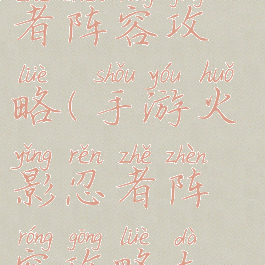 者阵容攻
lüè shǒu yóu huǒ
略(手游火
yǐng rěn zhě zhèn
影忍者阵
róng gōng lüè dà
容攻略大